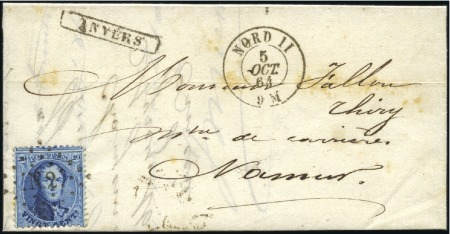 ANVERS
NORD II
5
OCT.
64
9 M
Monsieur Fallon
Thiry
de carrières
Namur
20 POSTES 20
VINGT CENTS